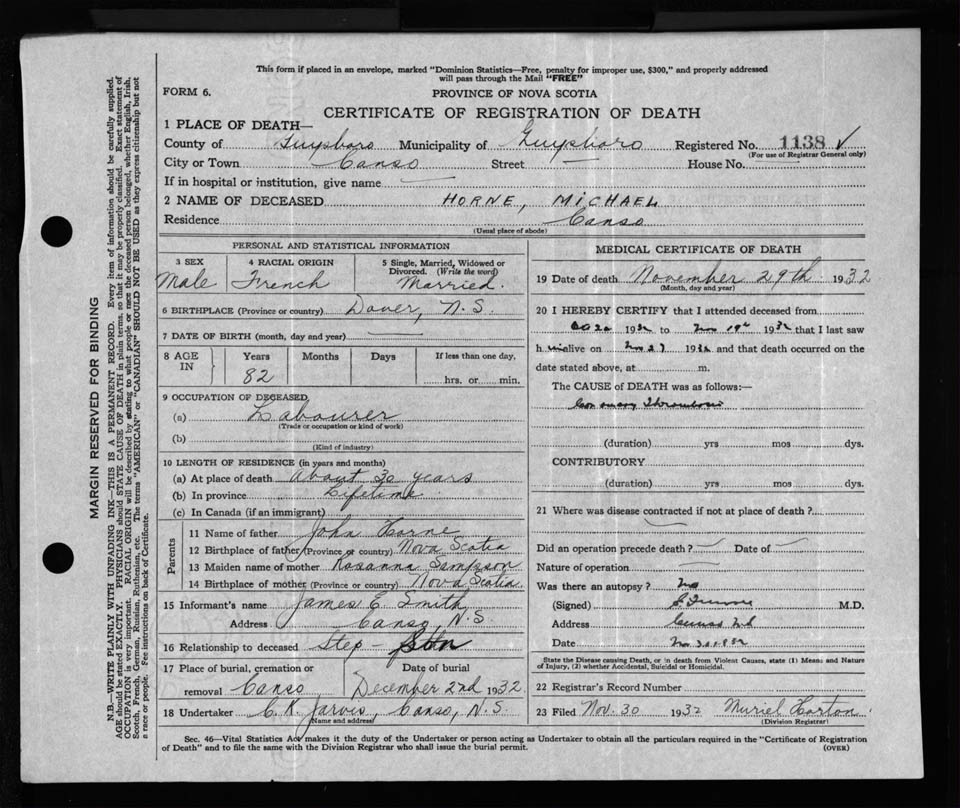 This form if placed in an envelope, marked "Dominion Statistics—Free, penalty for improper use, $300," and properly addressed
will pass through the Mail "FREE"
FORM 6.
PROVINCE OF NOVA SCOTIA
CERTIFICATE OF REGISTRATION OF DEATH
1 PLACE OF DEATH—
County of Guysboro Municipality of Guysboro Registered No. 1138 √
(For use of Registrar General only)
City or Town Canso Street — House No.
If in hospital or institution, give name —
2 NAME OF DECEASED HORNE, MICHAEL
Residence Canso
(Usual place of abode)
PERSONAL AND STATISTICAL INFORMATION
3 SEX
Male
4 RACIAL ORIGIN
French
5 Single, Married, Widowed or
Divorced. (Write the word)
Married.
6 BIRTHPLACE (Province or country) Dover, N.S.
7 DATE OF BIRTH (month, day and year) —
8 AGE IN Years Months Days If less than one day,
82 hrs. or min.
9 OCCUPATION OF DECEASED
(a) Labourer
(Trade or occupation or kind of work)
(b)
(Kind of industry)
10 LENGTH OF RESIDENCE (in years and months)
(a) At place of death About 30 years
(b) In province Lifetime
(c) In Canada (if an immigrant)
Parents
11 Name of father John Horne
12 Birthplace of father (Province or country) Nova Scotia
13 Maiden name of mother Rosanna Sampson
14 Birthplace of mother (Province or country) Nova Scotia
15 Informant's name James E. Smith
Address Canso, N.S.
16 Relationship to deceased Step-Son
17 Place of burial, cremation or Date of burial
removal Canso, December 2nd 1932
18 Undertaker C. R. Jarvis, Canso, N.S.
(Name and address)
MEDICAL CERTIFICATE OF DEATH
19 Date of death November 29th 1932
(Month, day and year)
20 I HEREBY CERTIFY that I attended deceased from
1932 to Nov 1932 that I last saw
h im alive on Nov 27 1932 and that death occurred on the
date stated above, at m.
The CAUSE of DEATH was as follows:—
Coronary Thrombosis
(duration) yrs mos dys.
CONTRIBUTORY
(duration) yrs mos dys.
21 Where was disease contracted if not at place of death?
Did an operation precede death? — Date of —
Nature of operation —
Was there an autopsy? No
(Signed) M.D.
Address Canso N.S.
Date Nov 30 1932
State the Disease causing Death, or in death from Violent Causes, state (1) Means and Nature
of Injury, (2) whether Accidental, Suicidal or Homicidal.
22 Registrar's Record Number
23 Filed Nov. 30 1932 Muriel Horton
(Division Registrar)
Sec. 46—Vital Statistics Act makes it the duty of the Undertaker or person acting as Undertaker to obtain all the particulars required in the "Certificate of Registration
of Death" and to file the same with the Division Registrar who shall issue the burial permit.
(OVER)
MARGIN RESERVED FOR BINDING
N.B.—WRITE PLAINLY WITH UNFADING INK—THIS IS A PERMANENT RECORD. Every item of information should be carefully supplied.
AGE should be stated EXACTLY. PHYSICIANS should STATE CAUSE OF DEATH in plain terms, so that it may be properly classified. Exact statement of
OCCUPATION is very important. RACIAL ORIGIN will be described by stating to what people or race the deceased person belonged, whether English, Irish,
Scotch, French, German, Russian, Ruthenian, etc. The terms "AMERICAN" or "CANADIAN" SHOULD NOT BE USED as they express citizenship but not
a race or people. Fee instructions on back of Certificate.